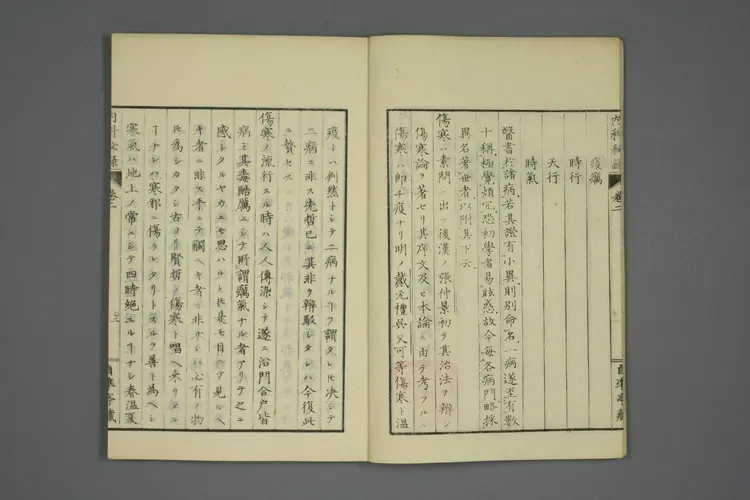 疫癘
時行
天行
時氣
醫書於諸病若其證有小異則別命名一病遂至有數
十稱極覺煩冗恐初學者易眩惑故今每各病門略採
異名著世者以附其下云
傷寒ハ素問ニ出ツ後漢ノ張仲景初テ其治法ヲ辨シ
傷寒論ヲ著セリ其序文及ヒ本論ニ由テ考フルニ
傷寒ハ即チ疫ナリ明ノ戴元禮呉又可等傷寒ト溫
疫トハ判然トシテ二病ナルヿヲ謂タレ𪜈决シテ
二病ニ非ス先哲已ニ其非ヲ辨駁シタレハ今復此
ニ贅セス
傷寒ノ流行スル時ハ人人傳染シテ遂ニ沿門合戸皆
病ミ其毒酷厲ニシテ所謂癘氣ナル者アリテ之ニ
感シタルヤウニモ思ハルレ𪜈某モ目ニテ見ルヘ
キ者ニ非ス手ニテ觸ヘキ者ニ非サレハ必有ノ物
𪜈爲シカタシ古ヨリ賢哲ノ傷寒ト唱ヘ來リタル
ヿナレハ寒邪ニ傷ラレタリトスルヲ善ト為ヘシ
寒氣ハ地上ノ常ニシテ四時絕エルヿナシ春溫夏
內科秘錄
卷二
自準亭藏